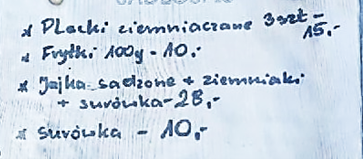 * Placki ziemniaczane 3szt - 15,-
* Frytki 100g - 10,-
* Jajka sadzone + ziemniaki
+ surówka - 28,-
* Surówka - 10,-